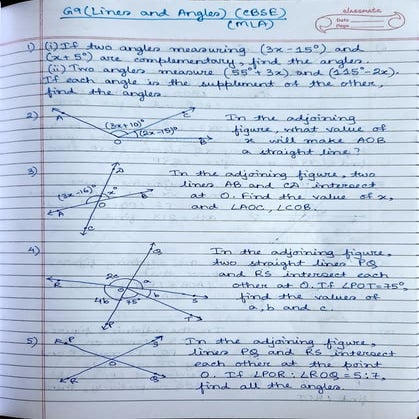 G9 (Lines and Angles) (CBSE)
(MLA)
classmate
Date
Page
1) (i) If two angles measuring (3x-15°) and
(x+5°) are complementary, find the angles.
(ii) Two angles measure (55°+3x) and (115°-2x).
If each angle is the supplement of the other,
find the angles.
2) In the adjoining
figure, what value of
x will make AOB
a straight line?
A
C
(3x+10)°
(2x-15)°
O
B
3) In the adjoining figure, two
lines AB and CD intersect
at O. Find the value of x,
and ∠AOC, ∠COB.
D
(3x-16)°
x°
B
A
O
C
4) In the adjoining figure,
two straight lines PQ
and RS intersect each
other at O. If ∠POT=75°,
find the values of
a, b and c.
Q
2c
a
R
O
b
4b
75°
S
P
5) In the adjoining figure,
lines PQ and RS intersect
each other at the point
O. If ∠POR : ∠ROQ = 5:7,
find all the angles.
P
S
O
R
Q